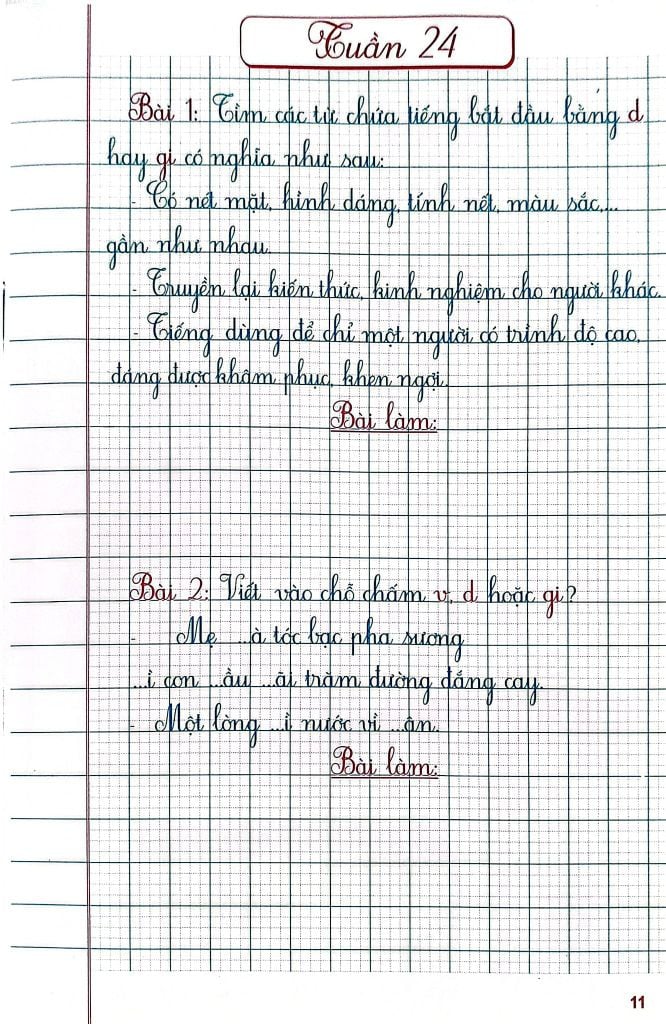 Tuần 24
Bài 1: Tìm các từ chứa tiếng bắt đầu bằng d
hay gi có nghĩa như sau:
- Có nét mặt, hình dáng, tính nết, màu sắc,...
gần như nhau.
- Truyền lại kiến thức, kinh nghiệm cho người khác.
- Tiếng dùng để chỉ một người có trình độ cao,
đáng được khâm phục, khen ngợi.
Bài làm:
Bài 2: Viết vào chỗ chấm v, d hoặc gi?
- Mẹ ...à tóc bạc pha sương
...ì con ...ầu ...ãi trăm đường đắng cay.
- Một lòng ...ì nước vì ...ân.
Bài làm:
11